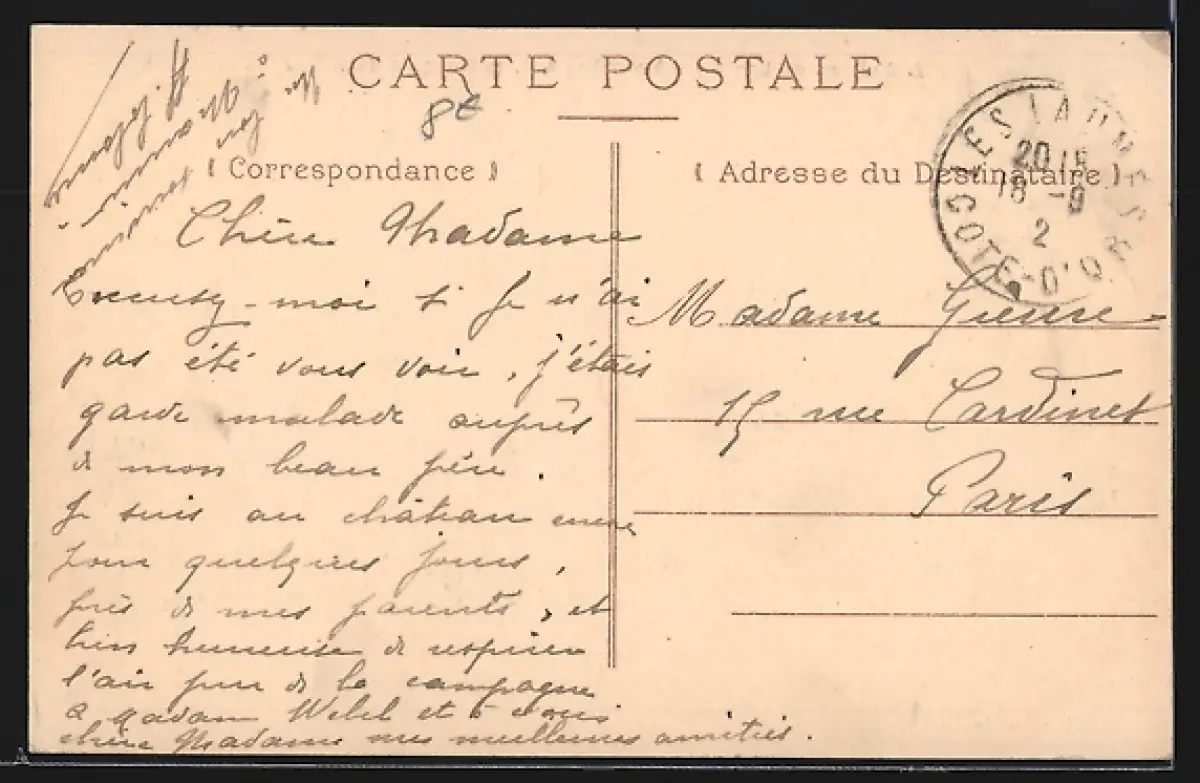 CARTE POSTALE
8€
( Correspondance )
( Adresse du Destinataire )
LES LAUMES
COTE-D'OR
20
18 -9
2
Chère Madame
Excusez-moi si je n'ai
pas été vous voir, j'étais
garde malade auprès
de mon beau père.
Je suis au château encore
pour quelques jours,
près de mes parents, et
bien heureuse de respirer
l'air pur de la campagne
à Madame et à vous
chère Madame mes meilleures amitiés.
Madame
15 rue Cardinet
Paris